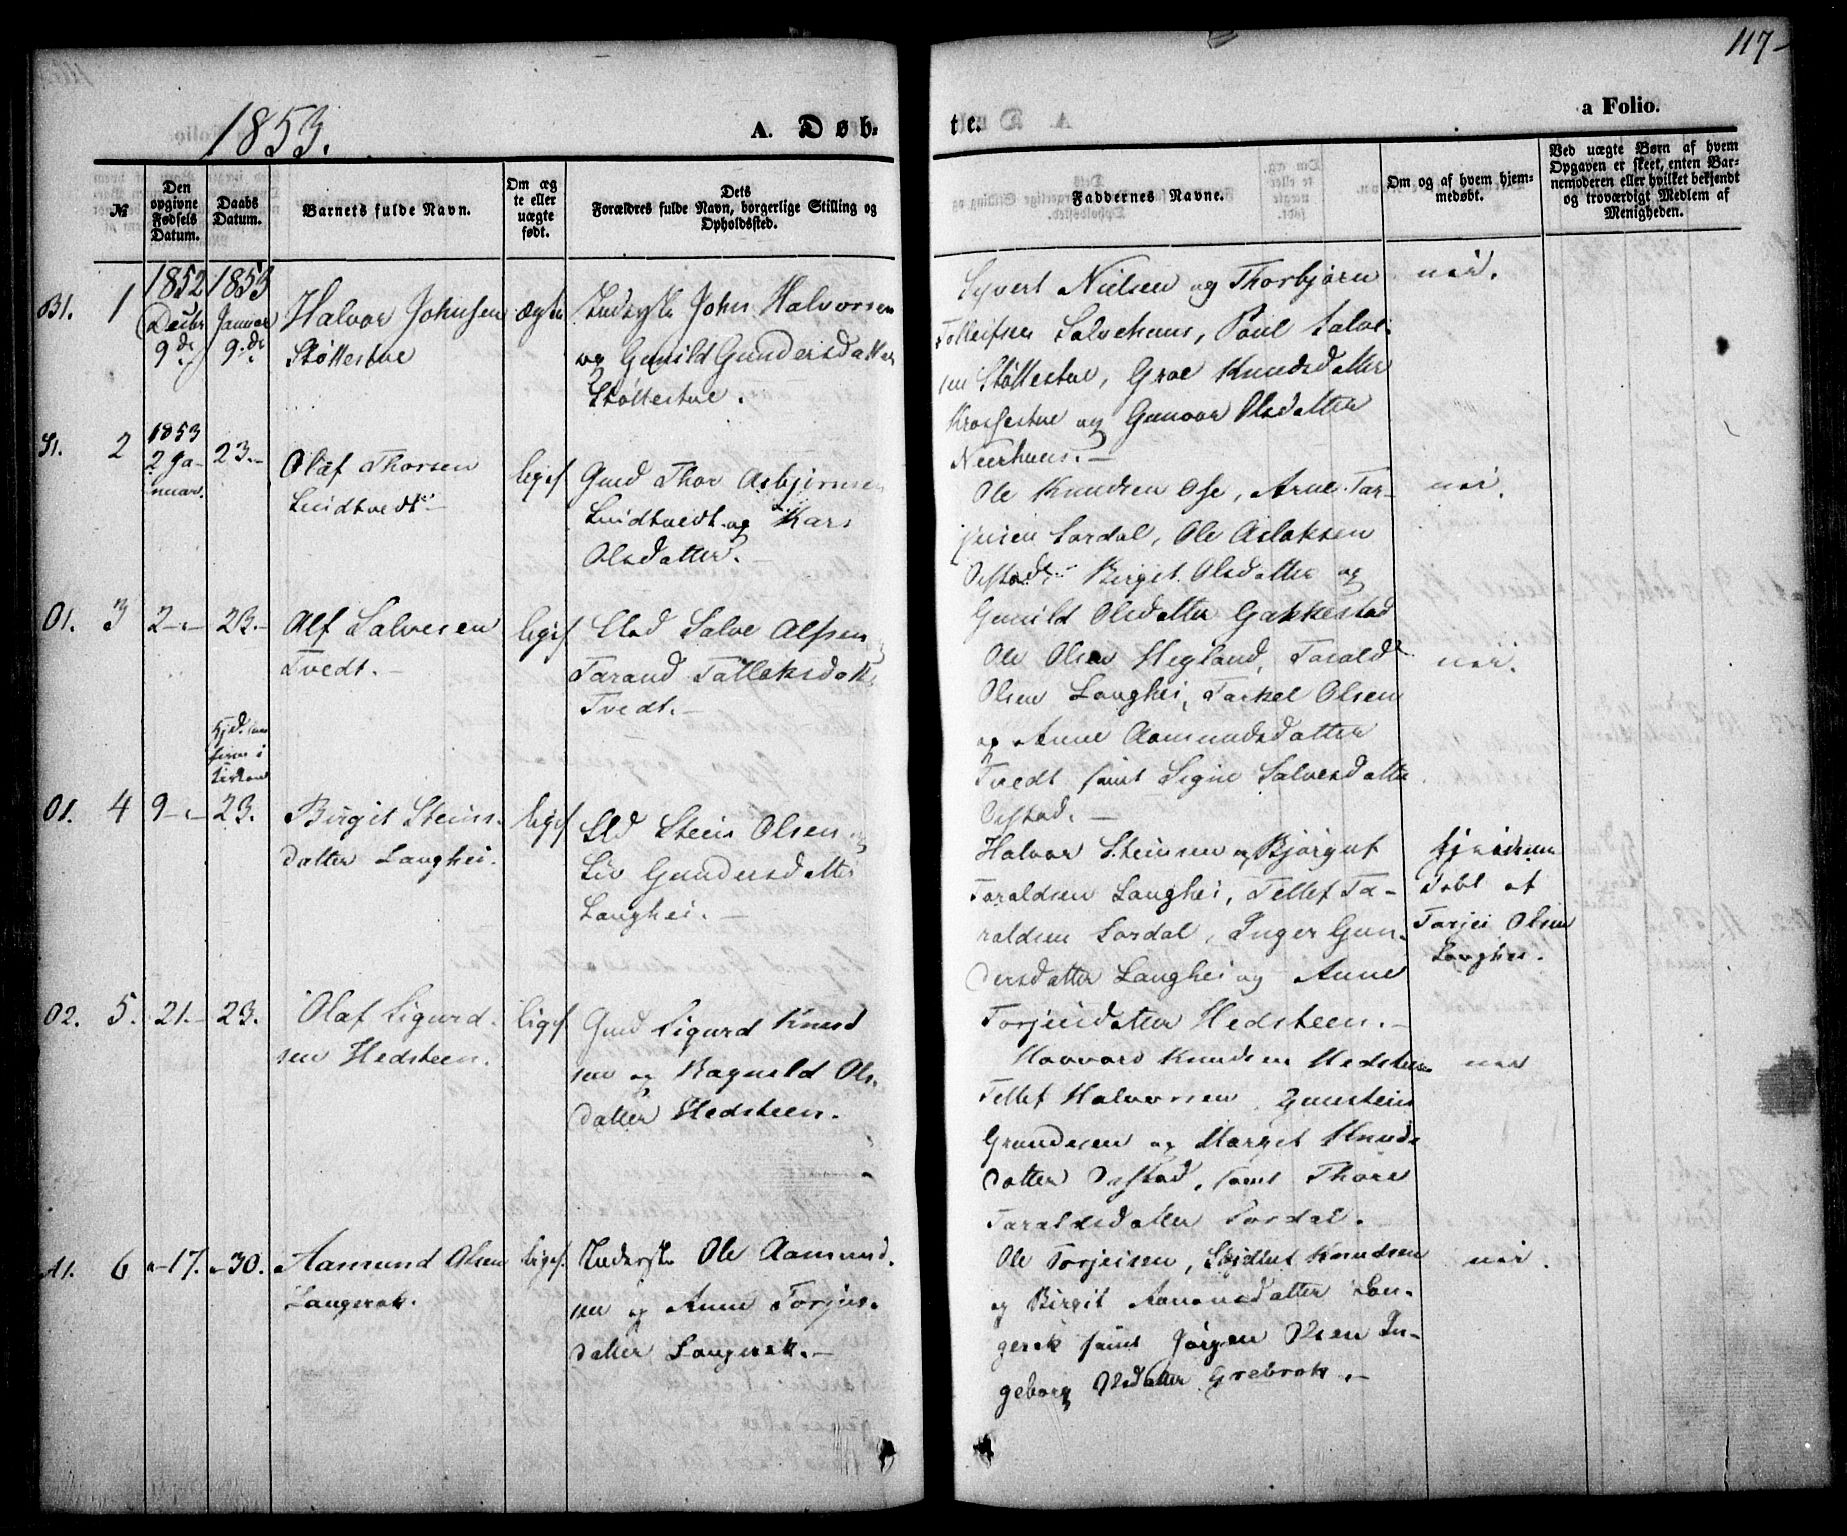 117
1853.
A. Døb-
te.
a Folio.
№
Den opgivne Fødsels Datum.
Daabs Datum.
Barnets fulde Navn.
Om ægte eller uægte født.
Dets Forældres fulde Navn, borgerlige Stilling og Opholdssted.
Faddernes Navne.
Om og af hvem hjemmedøbt.
Ved uægte Børn af hvem Opgaven er skeet, enten Barnemoderen eller hvilket bekjendt og troværdigt Medlem af Menigheden.
Bl. 1
1852 Decbr 9de
1853 Januar 9de
Halvor Johnsen
Støllestue
ægte
Inderste John Halvorsen
og Gunild Gundersdatter
Støllestue.
Syvert Nielsen og Thorbjørn
Tolleifsen Salvehuus, Poul Salve-
sen Støllestue, Groe Knudsdatter
Krossestue og Gunvor Olsdatter
Neerhuus.—
nei.
Sl. 2
1853 2 Januar.
23.—
Olaf Thorsen
Lindtvedt—
liges
Gmd Thor Asbjørnsen
Lindtvedt og Kari
Olsdatter.—
Ole Knudsen Ose, Arne Tar-
jeisen Sordal, Ole Aslaksen
Ostad, Birgit Olsdatter og
Gunild Olsdatter Gakkestad
nei.
Ol. 3
2—
23.—
Alf Salvesen
Tvedt.—
liges
Eld Salve Alfsen
Tarand Tallaksdatt.
Tvedt.—
Ole Olsen Hegland, Tarald
Olsen Langhei, Tarkel Olsen
og Anne Aamundsdatter
Tvedt samt Signe Salvesdatter
Ostad.—
nei.
Ol. 4
9—
23.
Birgit Steins-
datter Langhei.
liges
Eld Stein Olsen og
Liv Gundersdatter
Langhei.—
Halvor Steinsen og Bjørguf
Taraldsen Langhei, Tellef Ta-
raldsen Sordal, Inger Gun-
dersdatter Langhei og Anne
Torjeisdatter Hedsteen.—
hjemme
døbt af
Tarjei Olsen
Langhei.
O2. 5.
21.—
23.
Olaf Sigurd-
sen Hedsteen.
liges
Gmd Sigurd Knud
sen og Ragnild Ols-
datter Hedsteen.
Haavard Knudsen Hedsteen
Tellef Halvorsen, Gunstein
Gundersen og Marget Knuds
datter Ostad, samt Thore
Taraldsdatter Sordal.
nei
Al. 6
17.
30.
Aamund Olsen
Langerak.
ligs.
Inderste Ole Aamund-
sen og Anne Torjus-
datter Langerak.—
Ole Torjeisen, Knudsen
og Birgit Aanonsdatter Lan-
gerak samt Jørgen Olsen In-
geborg Olsdatter Grebrok.—
nei.